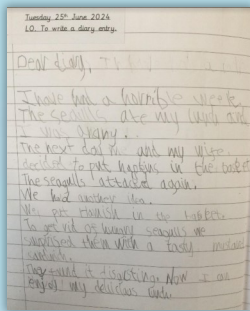 Tuesday 25th June 2024
L.O. To write a diary entry.
Dear diary,
I have had a horrible week.
The seagulls ate my lunch and
I was angry.
The next day me and my wife
decided to put in the basket
The seagulls attacked again.
We had another idea.
We put Hamish in the basket.
To get rid of hungry seagulls we
surprised them with a tasty
sandwich.
They found it disgusting. Now I am
enjoying my delicious lunch.